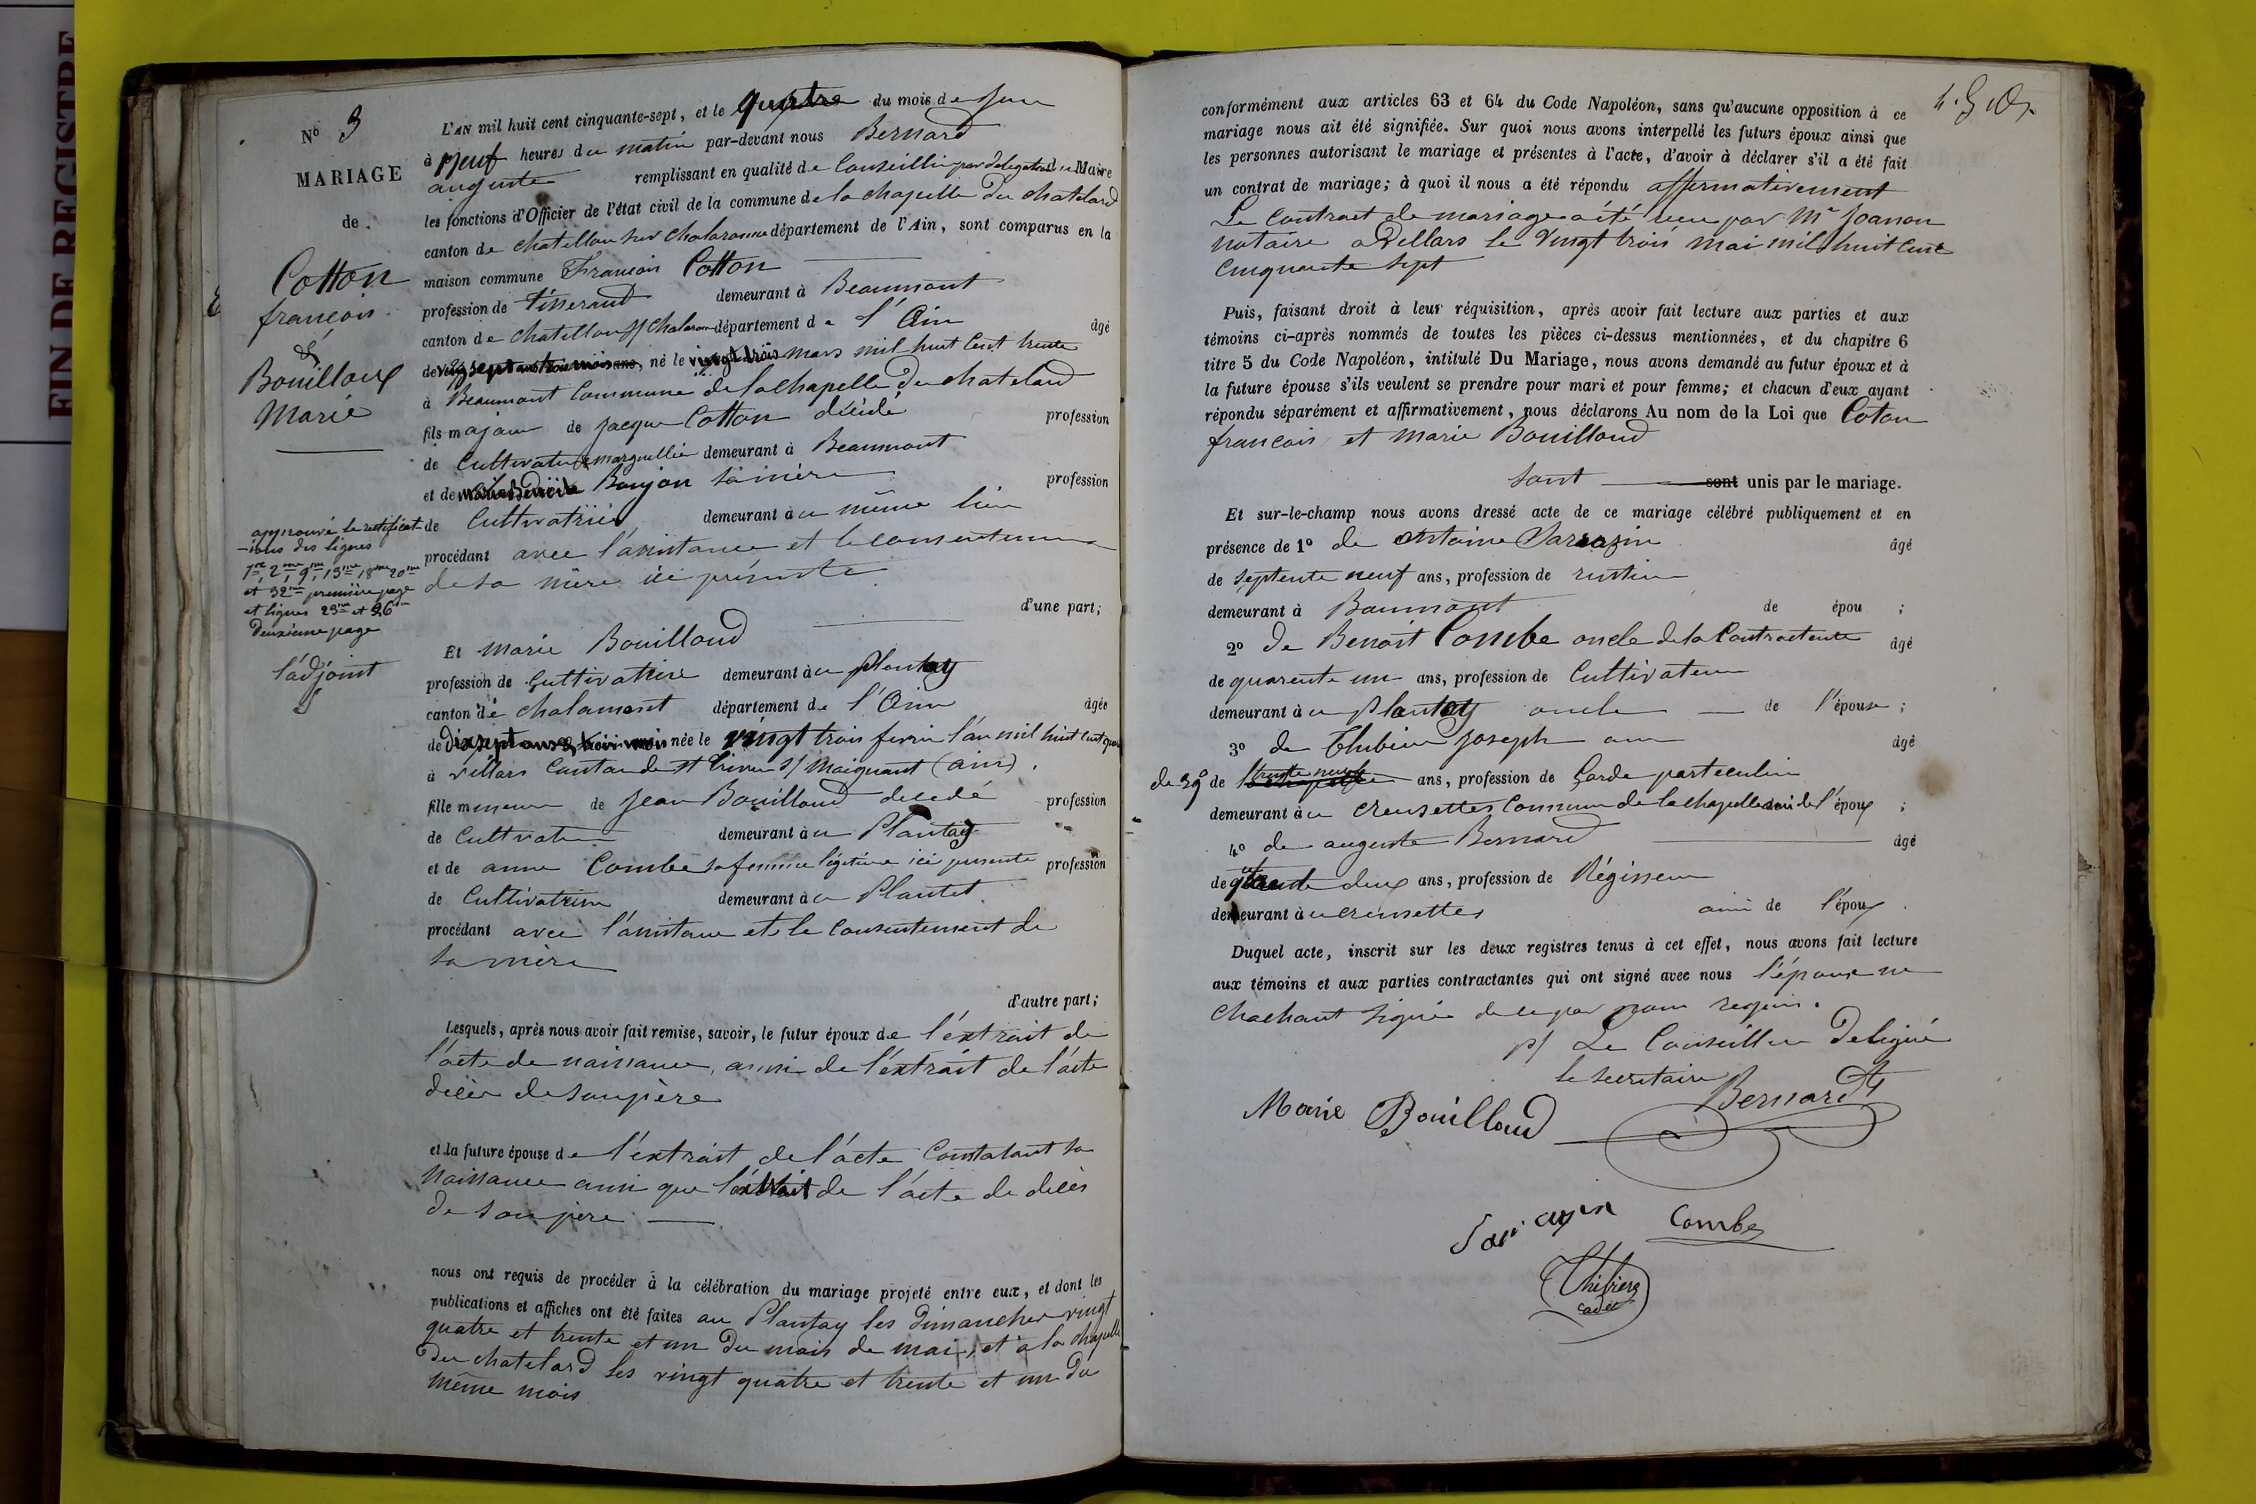 FIN DE REGISTRE
N° 3
MARIAGE
de
Cotton
françois
&
Bouilloux
Marie
approuvé la rectificat-
-ions des lignes
1re, 2me, 9me, 13me 18me 20me
et 32me première page
et lignes 23me et 26me
deuxième page
l'adjoint
L'AN mil huit cent cinquante-sept, et le quatre du mois de Juin
à Neuf heures du matin par-devant nous Bernard
auguste remplissant en qualité de Conseiller par délégation du Maire
les fonctions d'Officier de l'état civil de la commune de la chapelle du chatelard
canton de chatillon sur chalaronne département de l'Ain, sont comparus en la
maison commune François Cotton
profession de tisserand demeurant à Beaumont
canton de chatillon s/ chalaronne département de l'Ain âgé
de vingt sept ans trois mois ans, né le vingt trois mars mil huit cent trente
à Beaumont Commune de la chapelle du chatelard
fils majeur de Jacque Cotton décédé profession
de Cultivateur & marguillier demeurant à Beaumont
et de Benoite Boujon sa mère profession
de Cultivatrice demeurant à ce même lieu
procédant avec l'assistance et le consentement
de sa mère ici présente
d'une part;
Et Marie Bouilloud
profession de Cultivatrice demeurant à au Plantay
canton de chalamont département de l'Ain âgée
de dix sept ans & trois mois née le vingt trois fevrier l'an mil huit cent quar
à villars Canton de St Trivier s/ Moignant (ain).
fille mineure de Jean Bouilloud décédé profession
de Cultivateur demeurant à au Plantay
et de anne Combe sa femme légitime ici présente profession
de Cultivatrice demeurant à au Plantet
procédant avec l'assistance et le consentement de
sa mère
d'autre part;
Lesquels, après nous avoir fait remise, savoir, le futur époux de l'extrait de
l'acte de naissance, ainsi de l'extrait de l'acte
décès de son père
et la future épouse de l'extrait de l'acte Constatant sa
Naissance ainsi que l'extrait de l'acte de décès
de son père
nous ont requis de procéder à la célébration du mariage projeté entre eux, et dont les
publications et affiches ont été faites au Plantay les dimanches vingt
quatre et trente et un du mois de mai, et à la chapelle
du chatelard les vingt quatre et trente et un du
même mois
conformément aux articles 63 et 64 du Code Napoléon, sans qu'aucune opposition à ce
mariage nous ait été signifiée. Sur quoi nous avons interpellé les futurs époux ainsi que
les personnes autorisant le mariage et présentes à l'acte, d'avoir à déclarer s'il a été fait
un contrat de mariage; à quoi il nous a été répondu affirmativement
Le Contract de mariage a été reçu par Mr Joanon
notaire a Villars le vingt trois mai mil huit cent
Cinquante Sept
Puis, faisant droit à leur réquisition, après avoir fait lecture aux parties et aux
témoins ci-après nommés de toutes les pièces ci-dessus mentionnées, et du chapitre 6
titre 5 du Code Napoléon, intitulé Du Mariage, nous avons demandé au futur époux et à
la future épouse s'ils veulent se prendre pour mari et pour femme; et chacun d'eux ayant
répondu séparément et affirmativement, nous déclarons Au nom de la Loi que Coton
francois et marie Bouilloud
sont sont unis par le mariage.
Et sur-le-champ nous avons dressé acte de ce mariage célébré publiquement et en
présence de 1° de Antoine Sarrazin âgé
de septente neuf ans, profession de rustin
demeurant à Baumont de épou ;
2° de Benoit Combe oncle de la Contractente âgé
de quarente un ans, profession de Cultivateur
demeurant à au Plantay oncle de l'épouse ;
3° de Thibier Joseph âgé
de 39 de trente neuf ans, profession de Garde particulier
demeurant à au Creusettes Commune de la chapelle ami de l'époux ;
4° de auguste Bernard âgé
de quarante deux ans, profession de Régisseur
demeurant à au creusettes ami de l'époux
Duquel acte, inscrit sur les deux registres tenus à cet effet, nous avons fait lecture
aux témoins et aux parties contractantes qui ont signé avec nous l'épouse ne
Chachant signée de ce par nous requis.
p/ Le Conseiller Deligué
le secretaire
Bernard
Marie Bouilloud
Sarrazin Combe
Thibier
cadet